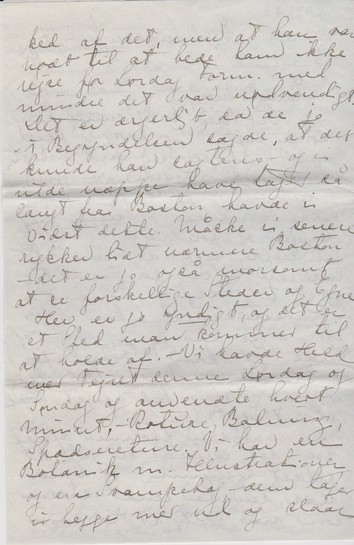 ked af det, men at han var
nødt til at bede ham ikke
rejse før Lørdag Form. med
mindre det var nødvendigt
Det er ærgerligt, da de jo
i Begyndelsen sagde, at det
kunde han sagtens - og vi
vilde næppe have taget så
langt fra Boston havde vi
vidst dette. Måske vi senere
rykker lidt nærmere Boston
- det er jo også morsomt
at se forskellige Steder og Egne
Her er jo yndigt, og det er
et Sted man kommer til
at holde af. - Vi havde Held
med Vejret denne Lørdag og
Søndag og anvendte hvert
Minut, - Roture, Badning,
Spadsereture. Vi har en
Botanik m. Illustrationer
og en Svampebog - dem tager
vi begge med ud og